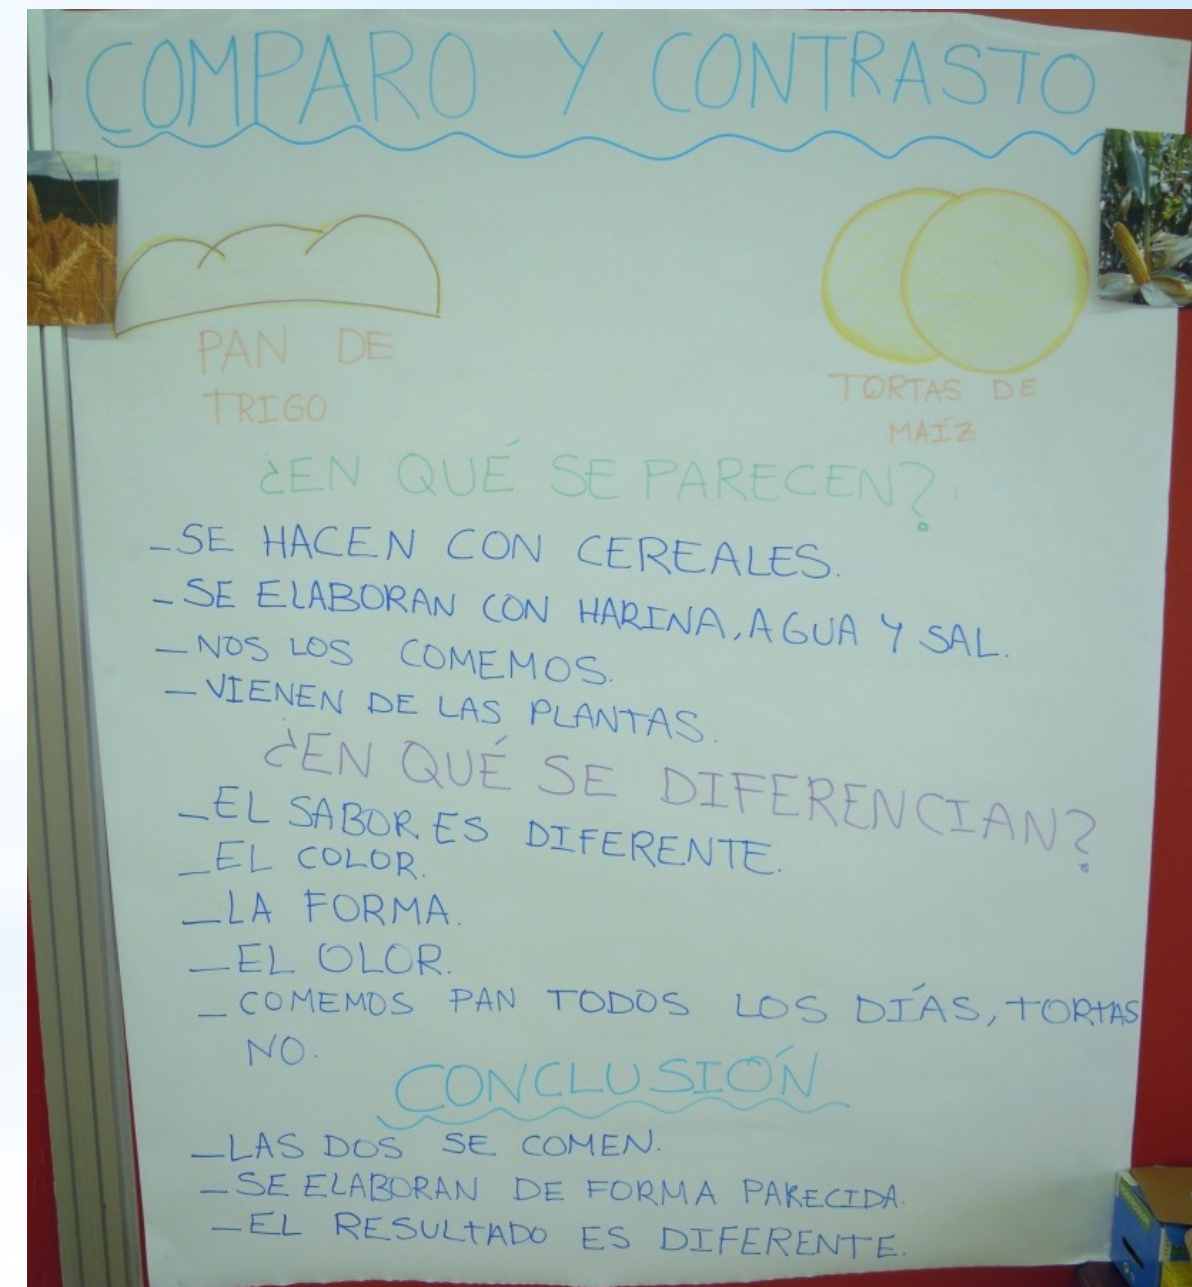 COMPARO Y CONTRASTO
PAN DE
TRIGO
TORTAS DE
MAÍZ
¿EN QUÉ SE PARECEN?
_SE HACEN CON CEREALES.
_SE ELABORAN CON HARINA, AGUA Y SAL.
_NOS LOS COMEMOS.
_VIENEN DE LAS PLANTAS.
¿EN QUÉ SE DIFERENCIAN?
_EL SABOR ES DIFERENTE.
_EL COLOR.
_LA FORMA.
_EL OLOR.
_COMEMOS PAN TODOS LOS DÍAS, TORTAS
NO.
CONCLUSIÓN
_LAS DOS SE COMEN.
_SE ELABORAN DE FORMA PARECIDA.
_EL RESULTADO ES DIFERENTE.